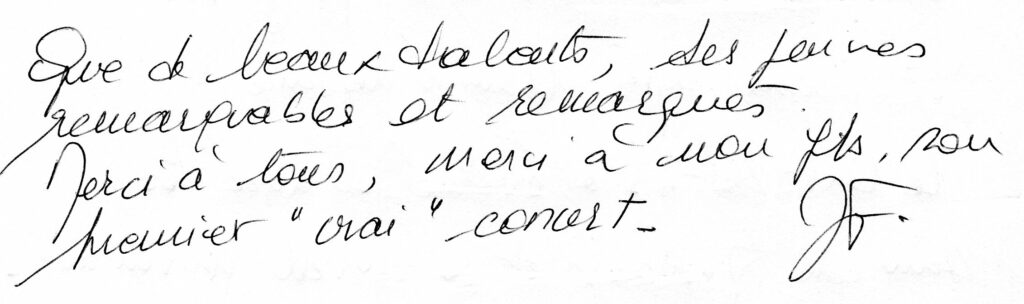 Que de beaux talents, des jeunes
remarquables et remarqués.
Merci à tous, merci à mon fils, son
premier "vrai" concert -
JF.